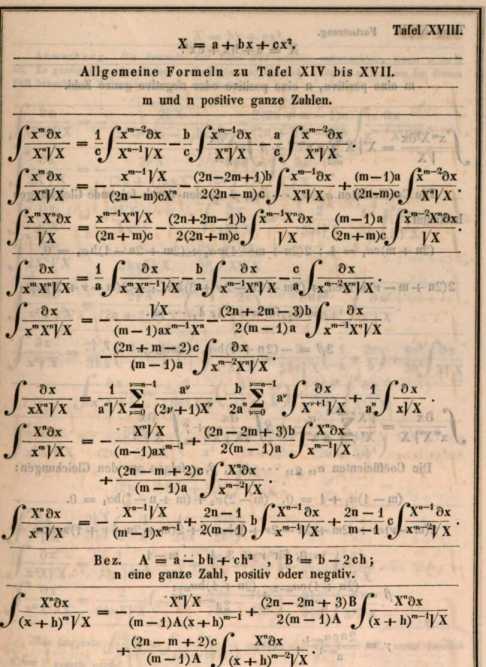 Tafel XVIII.
X = a + bx + cx².
Allgemeine Formeln zu Tafel XIV bis XVII.
m und n positive ganze Zahlen.
∫ xᵐ∂x / Xⁿ√X = 1/c ∫ xᵐ⁻²∂x / Xⁿ⁻¹√X − b/c ∫ xᵐ⁻¹∂x / Xⁿ√X − a/c ∫ xᵐ⁻²∂x / Xⁿ√X .
∫ xᵐ∂x / Xⁿ√X = − xᵐ⁻¹√X / (2n−m)cXⁿ − (2n−2m+1)b / 2(2n−m)c ∫ xᵐ⁻¹∂x / Xⁿ√X + (m−1)a / (2n−m)c ∫ xᵐ⁻²∂x / Xⁿ√X .
∫ xᵐXⁿ∂x / √X = xᵐ⁻¹Xⁿ√X / (2n+m)c − (2n+2m−1)b / 2(2n+m)c ∫ xᵐ⁻¹Xⁿ∂x / √X − (m−1)a / (2n+m)c ∫ xᵐ⁻²Xⁿ∂x / √X .
∫ ∂x / xᵐXⁿ√X = 1/a ∫ ∂x / xᵐXⁿ⁻¹√X − b/a ∫ ∂x / xᵐ⁻¹Xⁿ√X − c/a ∫ ∂x / xᵐ⁻²Xⁿ√X .
∫ ∂x / xᵐXⁿ√X = − √X / (m−1)axᵐ⁻¹Xⁿ − (2n+2m−3)b / 2(m−1)a ∫ ∂x / xᵐ⁻¹Xⁿ√X
− (2n+m−2)c / (m−1)a ∫ ∂x / xᵐ⁻²Xⁿ√X .
∫ ∂x / xXⁿ√X = 1 / aⁿ√X Σ_{ν=0}^{ν=n−1} a^ν / (2ν+1)X^ν − b / 2aⁿ Σ_{ν=0}^{ν=n−1} a^ν ∫ ∂x / X^{ν+1}√X + 1/aⁿ ∫ ∂x / x√X .
∫ Xⁿ∂x / xᵐ√X = − Xⁿ√X / (m−1)axᵐ⁻¹ + (2n−2m+3)b / 2(m−1)a ∫ Xⁿ∂x / xᵐ⁻¹√X
+ (2n−m+2)c / (m−1)a ∫ Xⁿ∂x / xᵐ⁻²√X .
∫ Xⁿ∂x / xᵐ√X = − Xⁿ⁻¹√X / (m−1)xᵐ⁻¹ + 2n−1 / 2(m−1) b ∫ Xⁿ⁻¹∂x / xᵐ⁻¹√X + 2n−1 / m−1 c ∫ Xⁿ⁻¹∂x / xᵐ⁻²√X .
Bez. A = a − bh + ch² , B = b − 2ch;
n eine ganze Zahl, positiv oder negativ.
∫ Xⁿ∂x / (x+h)ᵐ√X = − Xⁿ√X / (m−1)A(x+h)ᵐ⁻¹ + (2n−2m+3)B / 2(m−1)A ∫ Xⁿ∂x / (x+h)ᵐ⁻¹√X
+ (2n−m+2)c / (m−1)A ∫ Xⁿ∂x / (x+h)ᵐ⁻²√X .